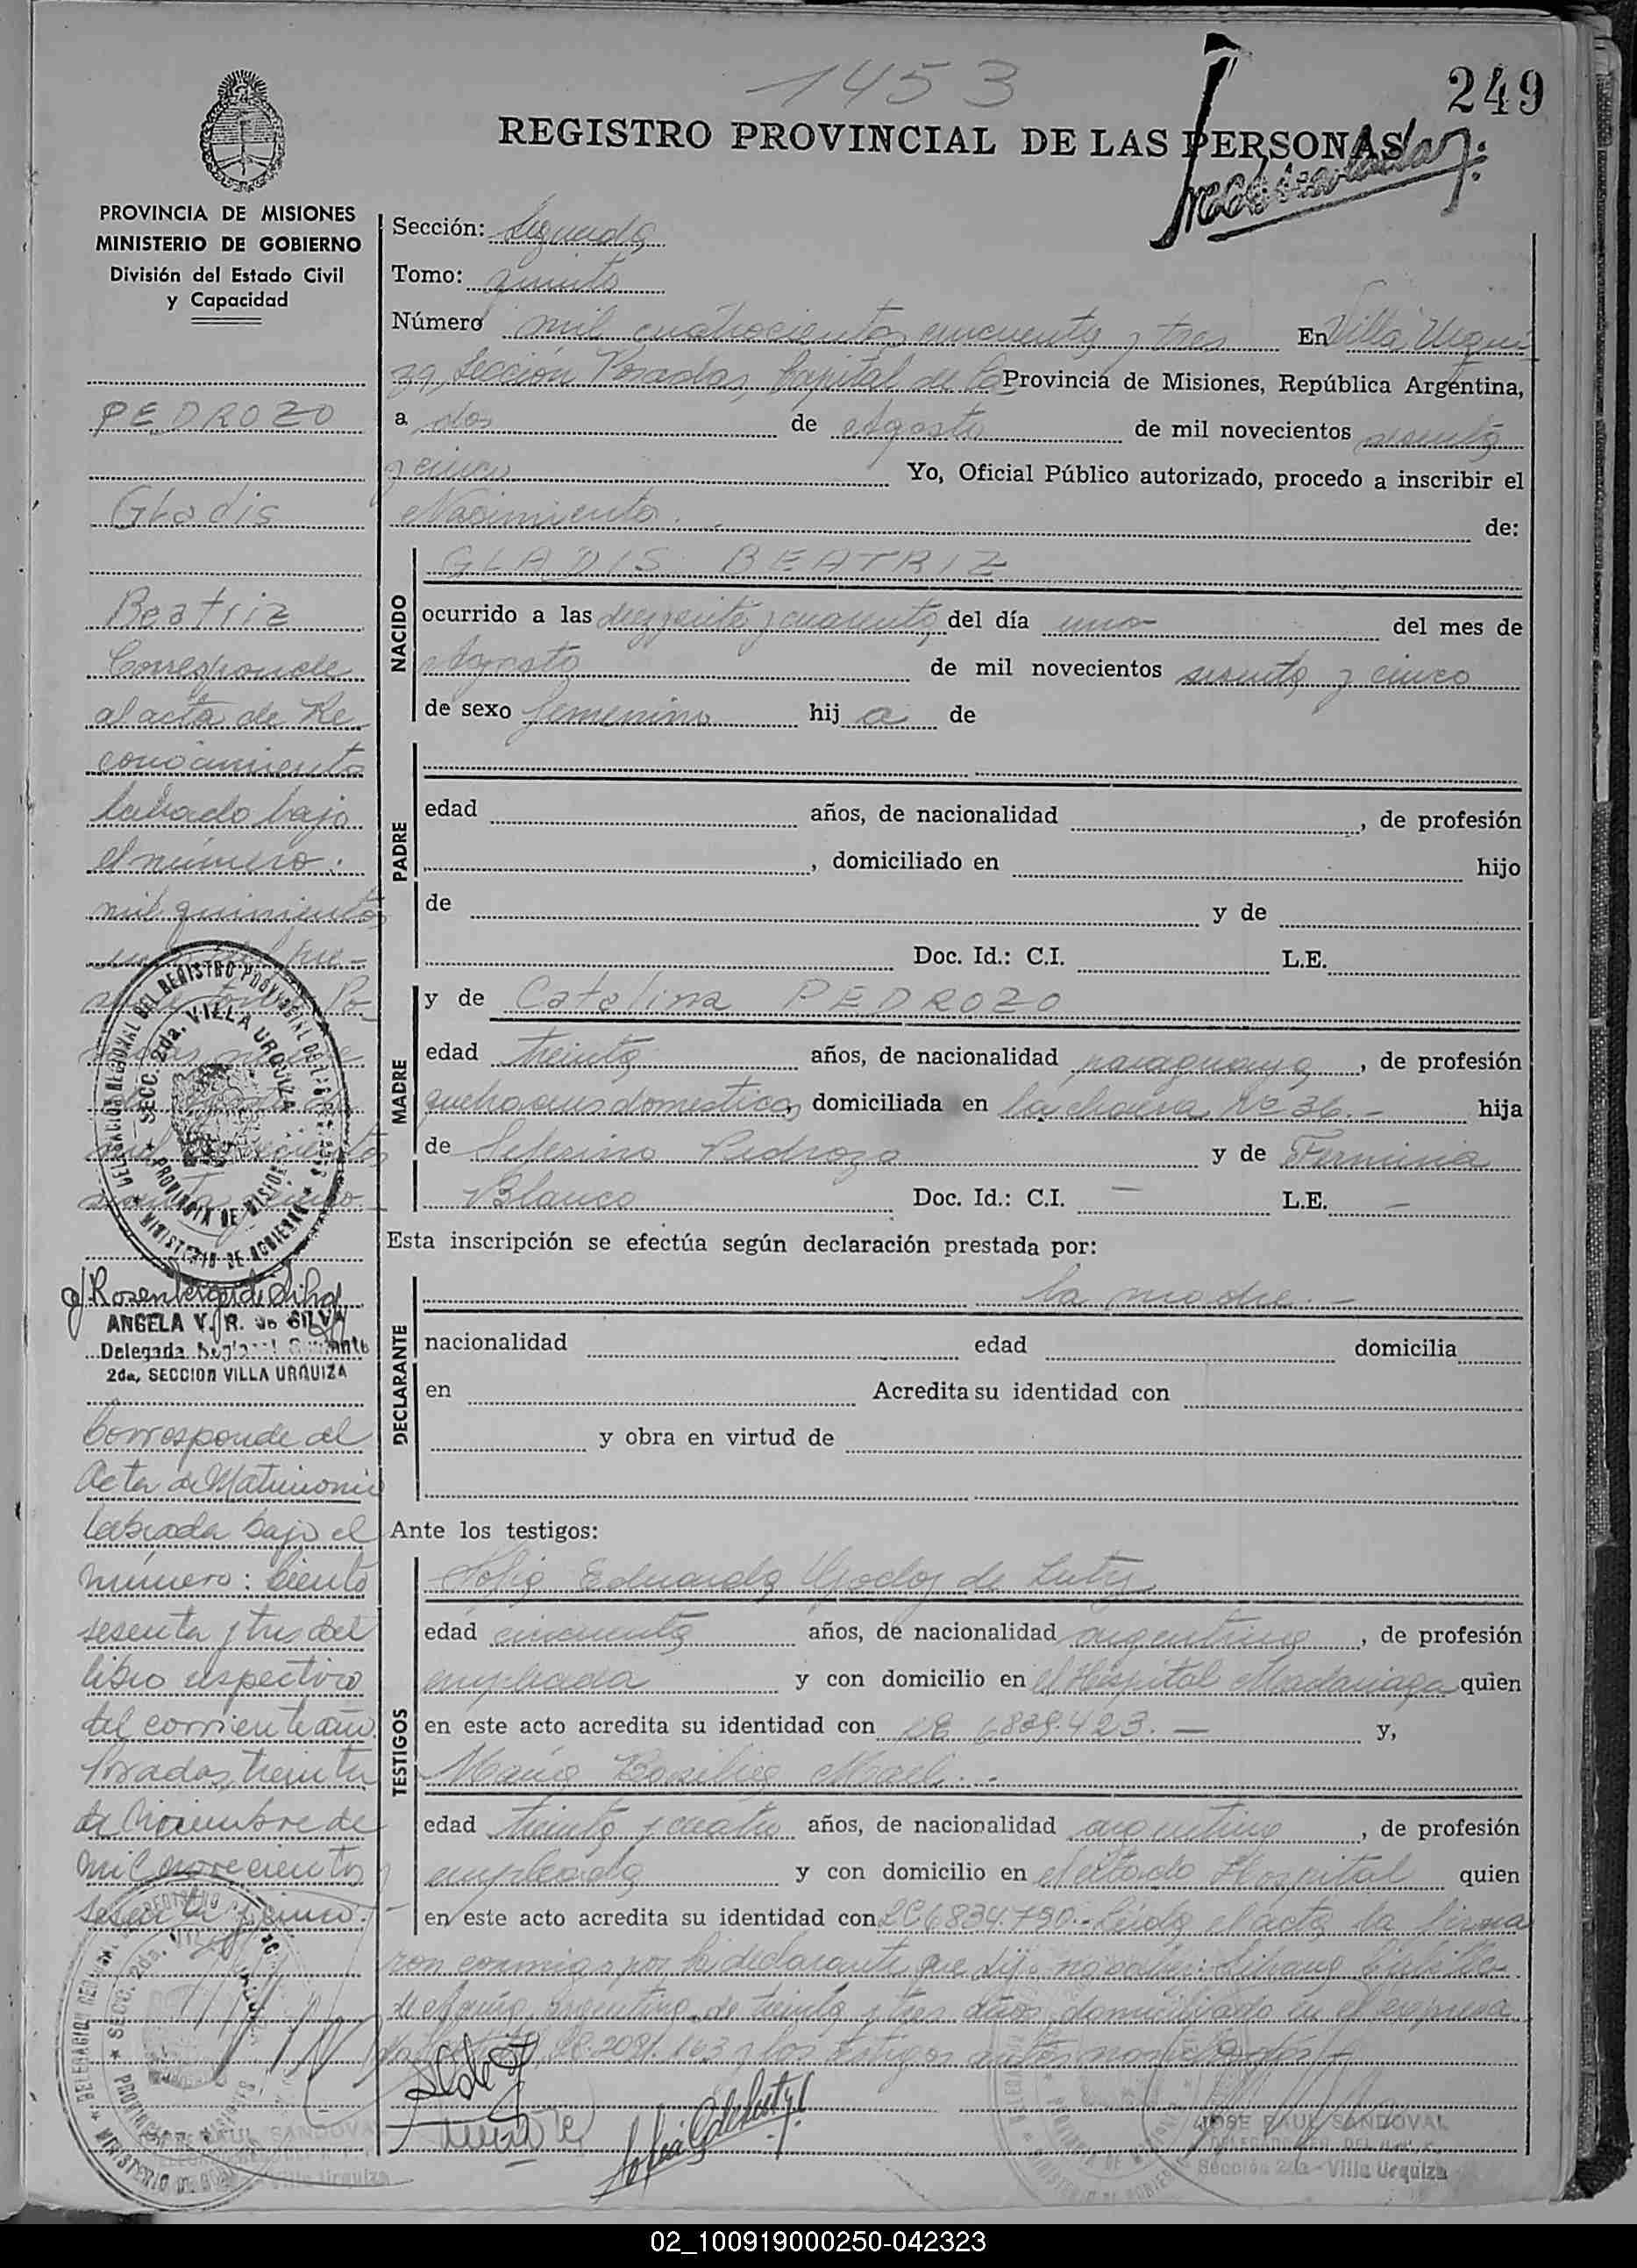 1453
249
REGISTRO PROVINCIAL DE LAS PERSONAS
PROVINCIA DE MISIONES
MINISTERIO DE GOBIERNO
División del Estado Civil
y Capacidad
PEDROZO
Gladis
Beatriz
Corresponde
al acta de Re
conocimiento
labrado bajo
el número:
mil quinientos
DELEGACION REGIONAL DEL REGISTRO PROVINCIAL DE LAS PERSONAS
SECC. 2da. VILLA URQUIZA
PROVINCIA DE MISIONES
MINISTERIO DE GOBIERNO
ANGELA V. R. de SILVA
Delegada Regional
2da. SECCION VILLA URQUIZA
Corresponde al
Acta de Matrimonio
labrada bajo el
número: ciento
sesenta y tres del
libro respectivo
del corriente año.
Posadas, treinta
de Noviembre de
mil novecientos
sesenta y cinco.
Sección: Segunda
Tomo: quinto
Número mil cuatrocientos cincuenta y tres En Villa Urqui
za, Sección Posadas, Capital de la Provincia de Misiones, República Argentina,
a dos de Agosto de mil novecientos sesenta
y cinco Yo, Oficial Público autorizado, procedo a inscribir el
Nacimiento. de:
NACIDO
GLADIS BEATRIZ
ocurrido a las y cuarenta del día uno del mes de
Agosto de mil novecientos sesenta y cinco
de sexo femenino hija de
PADRE
edad años, de nacionalidad , de profesión
, domiciliado en hijo
de y de
Doc. Id.: C.I. L.E.
MADRE
y de Catalina PEDROZO
edad treinta años, de nacionalidad paraguaya, de profesión
quehaceres domesticos, domiciliada en la chacra No 36.- hija
de Seferino Pedrozo y de Fermina
Blanco Doc. Id.: C.I. — L.E. —
Esta inscripción se efectúa según declaración prestada por:
DECLARANTE
la madre.-
nacionalidad edad domicilia
en Acredita su identidad con
y obra en virtud de
Ante los testigos:
TESTIGOS
Sofia Eduarda Godoy de
edad cincuenta años, de nacionalidad argentina, de profesión
empleada y con domicilio en el Hospital Madariaga quien
en este acto acredita su identidad con y,
María
edad treinta y cuatro años, de nacionalidad argentina, de profesión
empleada y con domicilio en el citado Hospital quien
en este acto acredita su identidad con LC 6834.790.- Leida el acta la firma
ron conmigo por la declarante que dijo no saber:
argentina, de treinta y tres años, domiciliada en el expresa
y los testigos antes nombrados.-
JOSE RAUL SANDOVAL
Sección 2da - Villa Urquiza
02_100919000250-042323